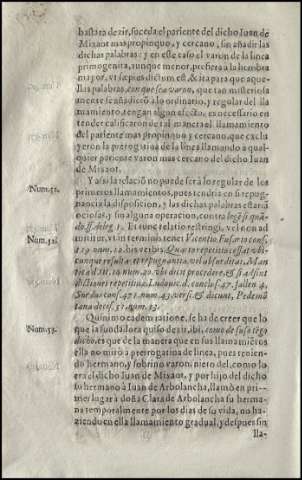 bastara dezir, suceda el pariente del dicho Iuan de
Mixaot mas propinquo, y cercano, sin añadir las
dichas palabras: y en este caso el varon de la linea
primogenita, aunque menor, prefiera a la hembra
mayor, vt sæpius dictum est, & ita para que aque-
llas palabras, con que sea varon, que tan misteriosa
mente se añadiero a lo ordinario, y regular del lla
mamiento, tengan algun efecto, es necessario en
tender calificaron de tal manera el llamamiento
del pariente mas propinquo y cercano, que exclu
yeron la prerogatiua de la linea llamando a qual-
quier pariente varon mas cercano del dicho Iuan
de Mixaot.
Num. 51.
Y assi la relacio no puede será lo regular de los
primeros llamamientos, pues tendria en si repug-
nancia la disposicion, y las dichas palabras estaria
ociosas, y sin alguna operacion, contra
Et tunc relatio restringi, vel non ad
Num. 52.
mittitur, vt in terminis tenet Vicentio Fusario cons.
Quarto repetitio cessat vbi-
cunque resultat repugnantia, vel absurditas, Man-
tica
dictiones repetitiuæ, Ludouic. d. conclus. 57. fallen. 4.
Surdus cons. 471. num. 43. versi. & dicunt, Pedemo
tana decis. 51. num. 45.
Num. 53.
Quinimo eadem ratione, se ha de creer que lo
que la fundadora quiso dezir, ibi, como de suso tego
dicho, es que de la manera que en sus llamamietos
ella no miró a prerogatiua de linea, pues tenien-
do hermano, y sobrino varon nieto del, como lo
era el dicho Iuan de Mixaot, y por hijo del dicho
su hermano à Iuan de Arbolancha, llamò en pri-
mer lugar à doña Clara de Arbolancha su herma
na temporalmente por los dias de su vida, no ha-
ziendo en ella llamamiento gradual, y despues sin
lla-